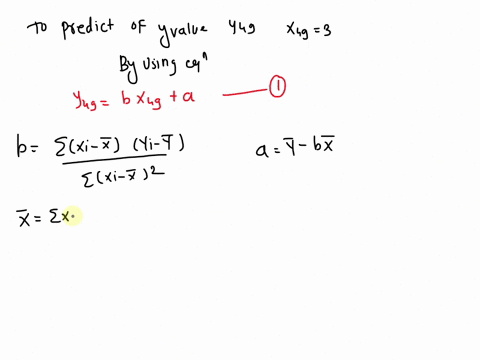 To predict of y value y49 x49 = 3
By using eqn
y49 = b x49 + a —— ①
b = Σ(xi-x̄) (Yi-Ȳ) / Σ(xi-x̄)² a = Ȳ - bx̄
x̄ = Σx.